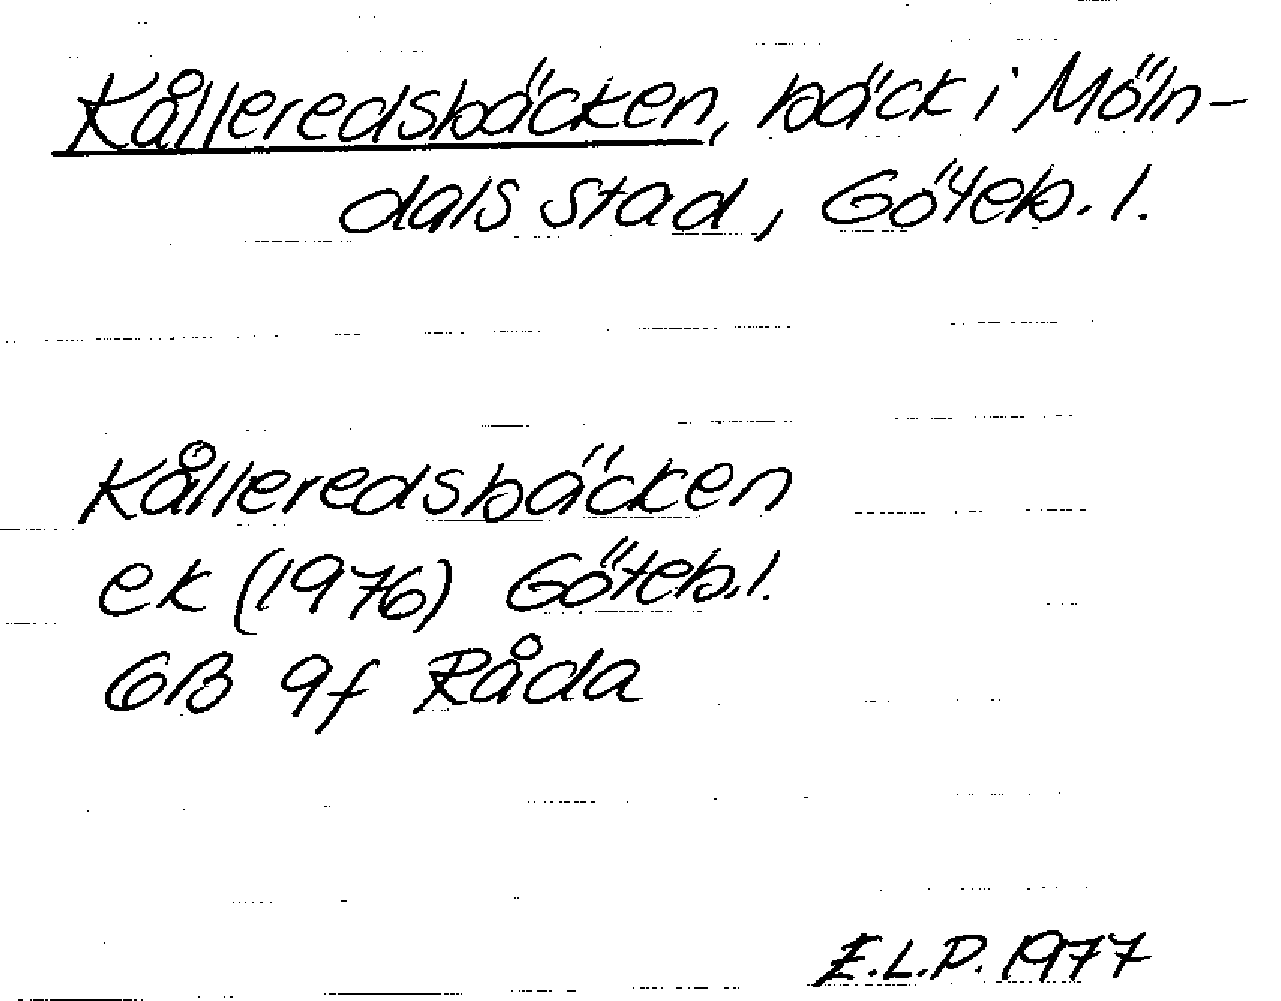 Kålleredsbäcken, bäck i Möln-
dals stad, Göteb. l.
Kålleredsbäcken
ek (1976) Göteb.l.
6B 9f Råda
E.L.P. 1977